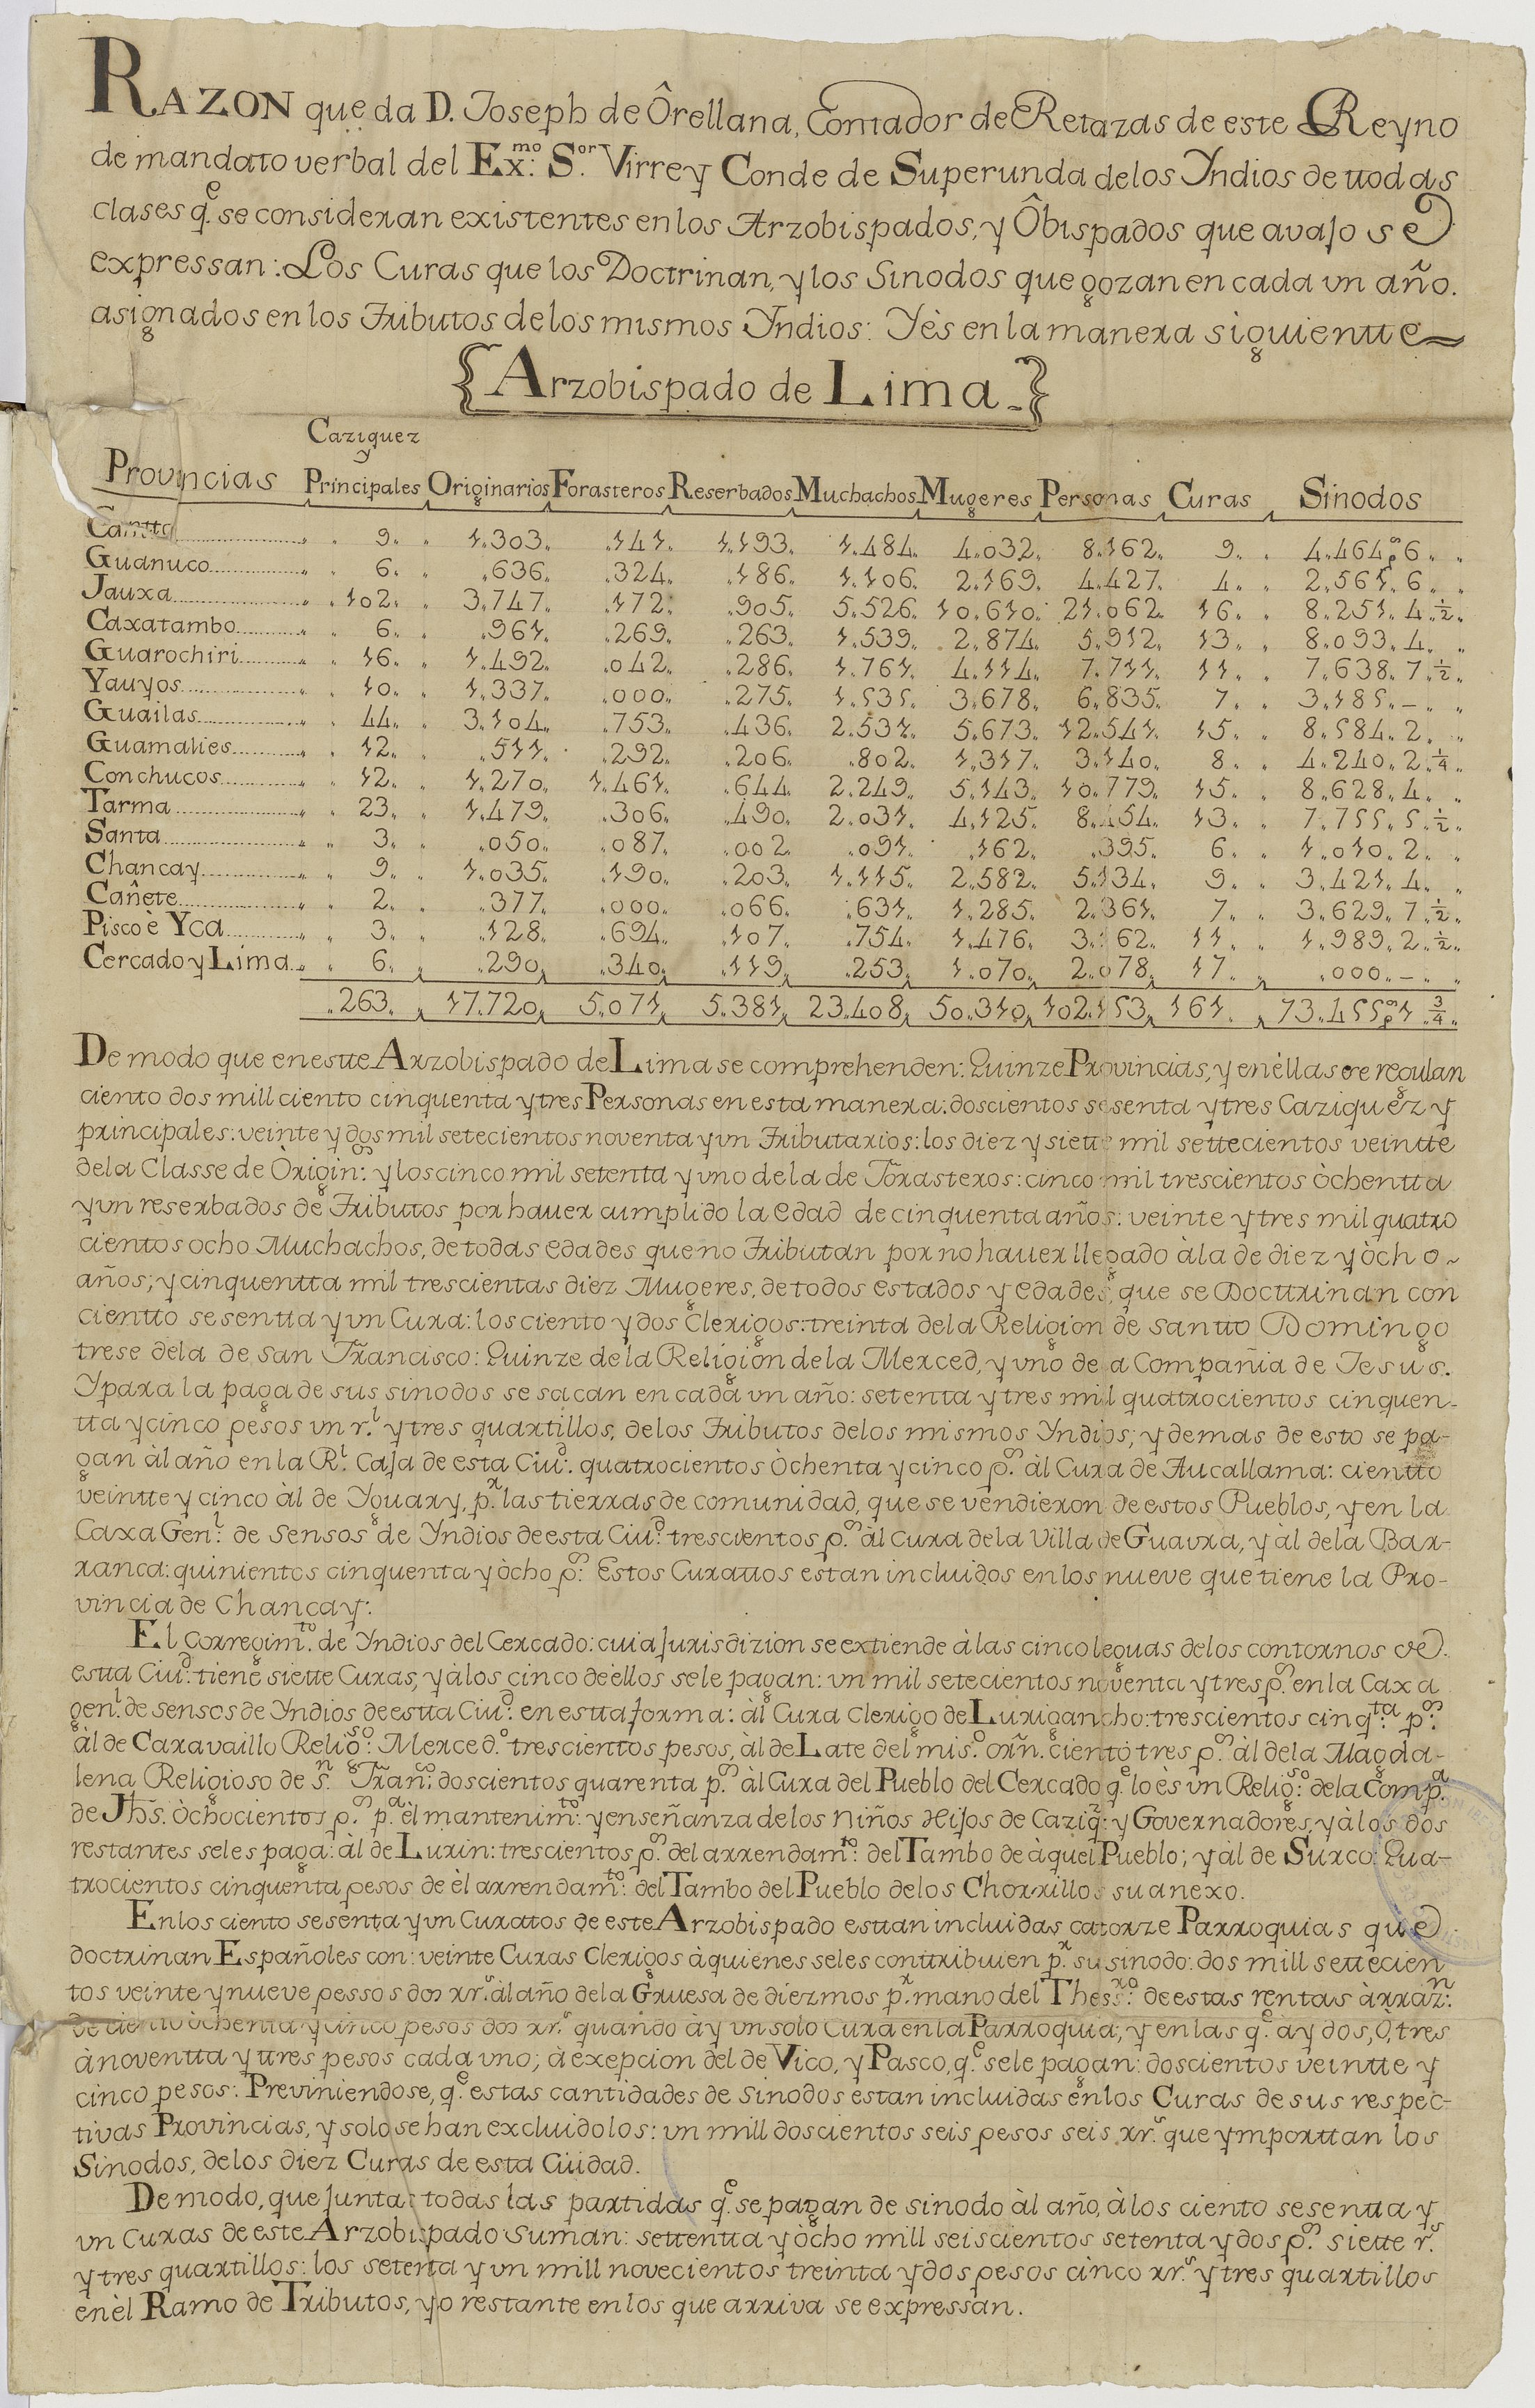 RAZON que da D. Joseph de Ôrellana, Contador de Retazas de este Reyno
de mandato verbal del Ex.mo S.or Virrey Conde de Superunda delos Yndios de ttodas
clases q.e se consideran existentes en los Arzobispados, y Ôbispados que avajo se
expressan: Los Curas que los Doctrinan, y los Sinodos que gozan en cada un año.
asignados en los Tributos de los mismos Yndios: Yès en la manera siguientte
{Arzobispado de Lima}
Provincias Caziquez y Principales Originarios Forasteros Reserbados Muchachos Mugeres Personas Curas Sinodos
Cantta 9. 1.303. .141. 1.193. 1.484. 4.032. 8.162. 9. 4.464 p.s 6.
Guanuco 6. .636. .324. .186. 1.106. 2.169. 4.427. 4. 2.561. 6.
Jauxa 102. 3.747. .172. .905. 5.526. 10.610. 21.062. 16. 8.251. 4. ½.
Caxatambo 6. .961. .269. .263. 1.539. 2.874. 5.912. 13. 8.093. 4.
Guarochiri 16. 1.492. .042. .286. 1.761. 4.114. 7.711. 11. 7.638. 7. ½.
Yauyos 10. 1.337. .000. .275. 1.535. 3.678. 6.835. 7. 3.185. –.
Guailas 44. 3.104. .753. .436. 2.531. 5.673. 12.541. 15. 8.584. 2.
Guamalies 12. .511. .292. .206. .802. 1.317. 3.140. 8. 4.240. 2. ¼.
Conchucos 12. 1.270. 1.461. .644. 2.249. 5.143. 10.779. 15. 8.628. 4.
Tarma 23. 1.479. .306. .490. 2.031. 4.125. 8.454. 13. 7.755. 5. ½.
Santa 3. .050. .087. .002. .091. .162. .395. 6. 1.010. 2.
Chancay 9. 1.035. .190. .203. 1.115. 2.582. 5.134. 9. 3.421. 4.
Cañete 2. .377. .000. .066. .631. 1.285. 2.361. 7. 3.629. 7. ½.
Pisco è Yca 3. .128. .694. .107. .754. 1.476. 3.162. 11. 1.989. 2. ½.
Cercado y Lima 6. .290. .340. .119. .253. 1.070. 2.078. 17. .000. –.
.263. 17.720. 5.071. 5.381. 23.408. 50.310. 102.153. 161. 73.455 p.s 1. ¾.
De modo que en estte Arzobispado de Lima se comprehenden: Quinze Provincias, y en èllas se regulan
ciento dos mill ciento cinquenta y tres Personas en esta manera: doscientos sesenta y tres Caziquez y
principales: veinte y dos mil setecientos noventa y un Tributarios: los diez y siette mil settecientos veintte
dela Classe de Òrigin.s y los cinco mil setenta y uno de la de Forasteros: cinco mil trescientos òchentta
y un reserbados de Tributos por haver cumplido la edad de cinquenta años: veinte y tres mil quatro
cientos ocho Muchachos, de todas edades que no Tributan por no haver llegado àla de diez y òcho
años; y cinquentta mil trescientas diez Mugeres, de todos estados y edades, que se Docttrinan con
cientto sesentta y un Cura: los ciento y dos Clerigos: treinta dela Religion de santto Domingo
trese dela de San Francisco: Quinze de la Religion de la Merced, y uno de la Compañia de Jesus.
Y para la paga de sus sinodos se sacan en cada un año: setenta y tres mil quatrocientos cinquen-
tta y cinco pesos un r.l y tres quartillos, de los Tributos delos mismos Yndios; y demas de esto se pa-
gan àl año en la R.l Caja de esta Ciu.d quatrocientos òchenta y cinco p.s àl Cura de Aucallama: cientto
veintte y cinco àl de Yguary, p.r las tierras de comunidad, que se vendieron de estos Pueblos, y en la
Caxa Gen.l de Sensos de Yndios de esta Ciu.d trescientos p.s àl Cura dela Villa de Guaura, y àl dela Bar-
ranca: quinientos cinquenta y òcho p.s Estos Curattos estan incluidos en los nueve que tiene la Pro-
vincia de Chancay:
El Corregim.to de Yndios del Cercado: cuia Jurisdizion se extiende à las cinco leguas delos contornos de
estta Ciu.d tiene siette Curas, y àlos cinco de èllos se le pagan: un mil setecientos noventa y tres p.s en la Caxa
gen.l de sensos de Yndios de estta Ciu.d en estta forma: àl Cura Clerigo de Lurigancho: trescientos cinq.ta p.s
àl de Caravaillo Relig.so Merced.o trescientos pesos, àl de Late del mis.o orñ. ciento tres p.s àl dela Magda-
lena Religioso de S.n Fran.co doscientos quarenta p.s àl Cura del Pueblo del Cercado q.e lo ès un Relig.so dela Comp.a
de Jhs. òchocientos p.s p.a èl mantenim.to y enseñanza de los Niños Hijos de Caziq.z y Governadores, y à los dos
restantes seles paga: àl de Lurin: trescientos p.s del arrendam.to del Tambo de àquel Pueblo; y àl de Surco: Qua-
trocientos cinquenta pesos de èl arrendam.to del Tambo del Pueblo delos Chorrillos su anexo.
En los ciento sesenta y un Curatos de este Arzobispado esttan incluidas catorze Parroquias que
doctrinan Españoles con: veinte Curas Clerigos àquienes seles conttribuien p.r su sinodo: dos mill settecien
tos veinte y nueve pessos dos rr.s àl año dela Gruesa de diezmos p.r mano del Thess.ro de estas rentas àrraz.n
de ciento òchenta y cinco pesos dos rr.s quando ày un solo Cura en la Parroquia; y en las q.e ày dos, ó, tres
à noventta y ttres pesos cada uno; à exepcion del de Vico, y Pasco, q.e se le pagan: doscientos veintte y
cinco pesos: Previniendose, q.e estas cantidades de Sinodos estan incluidas en los Curas de sus respec-
tivas Provincias, y solo se han excluido los: un mill doscientos seis pesos seis rr.s que ymporttan los
Sinodos, delos diez Curas de esta Ciudad.
De modo, que juntas todas las partidas q.e se pagan de sinodo àl año, à los ciento sesentta y
un Curas de este Arzobispado suman: settentta y òcho mill seiscientos setenta y dos p.s siette r.s
y tres quartillos: los setenta y un mill novecientos treinta y dos pesos cinco rr.s y tres quartillos
en èl Ramo de Tributos, y o restante en los que arriva se expressan.